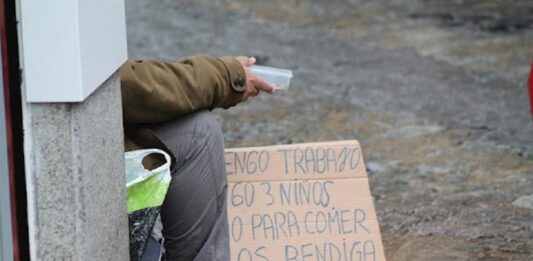 ENGO TRABAJO
GO 3 NIÑOS,
O PARA COMER
OS BENDIGA